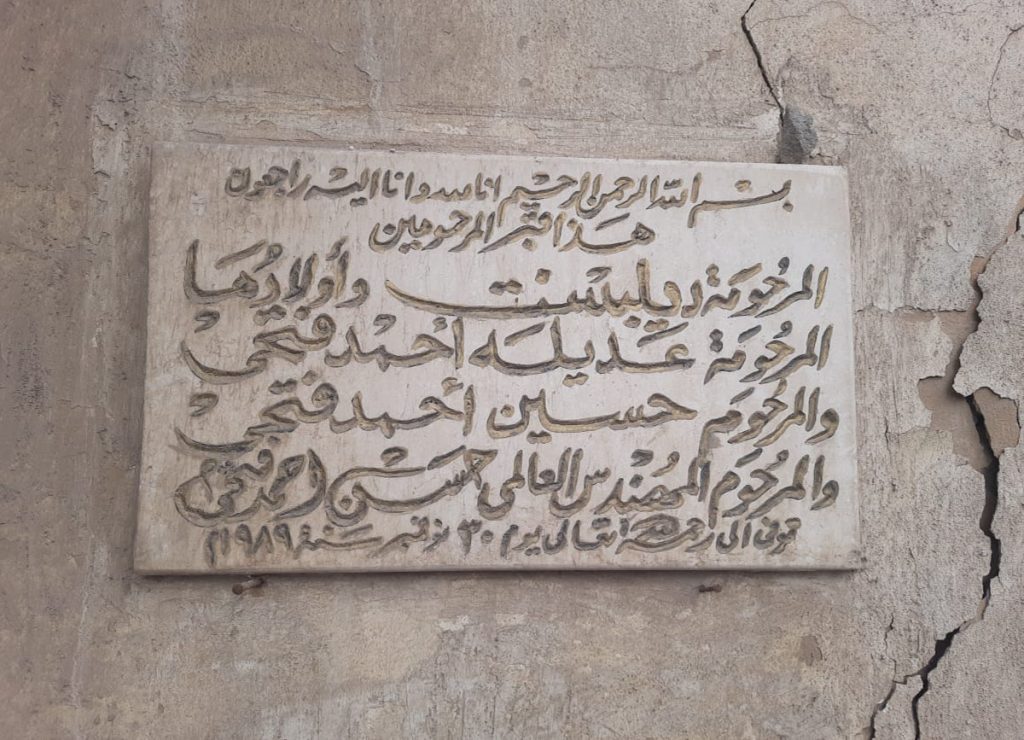 بسم الله الرحمن الرحيم انا لله وانا اليه راجعون
هذا قبر المرحومين
المرحومة دولبسنت وأولادها
المرحومة عديله أحمد فتحى
والمرحوم حسين أحمد فتحى
والمرحوم المهندس العالمى حسن احمد فتحى
توفى الى رحمة الله تعالى يوم ٣٠ نوفمبر سنة ١٩٨٩م